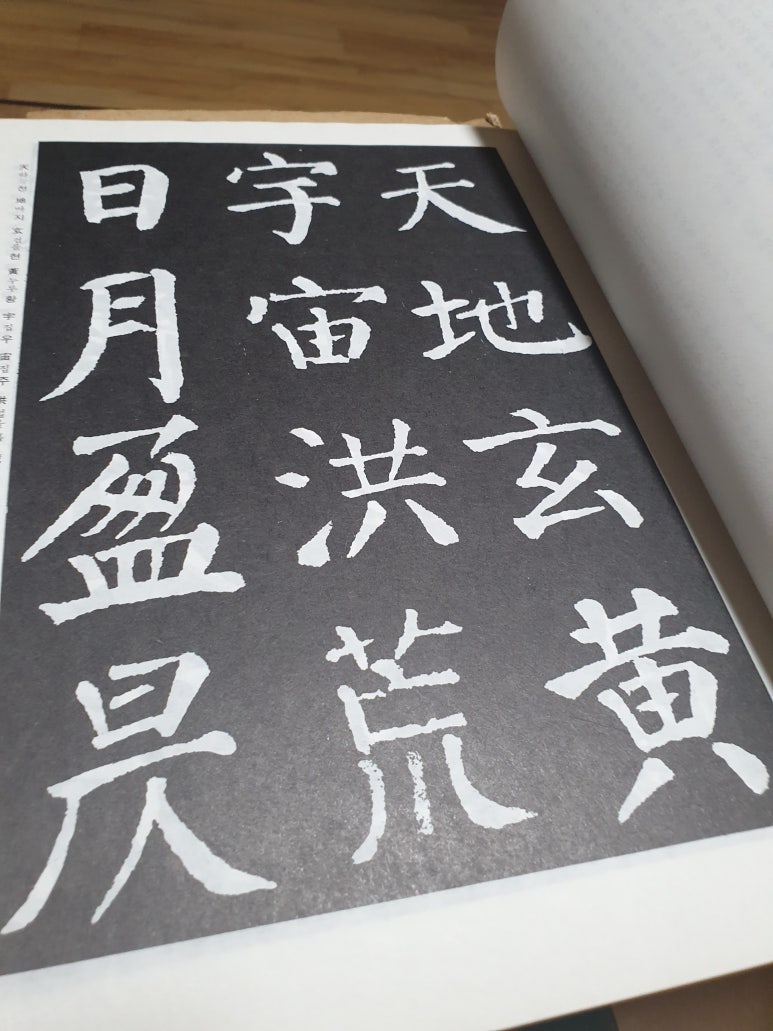 天地玄黄
宇宙洪荒
日月盈昃
天하늘천 地따지 玄검을현 黃누루황 宇집우 宙집주 洪